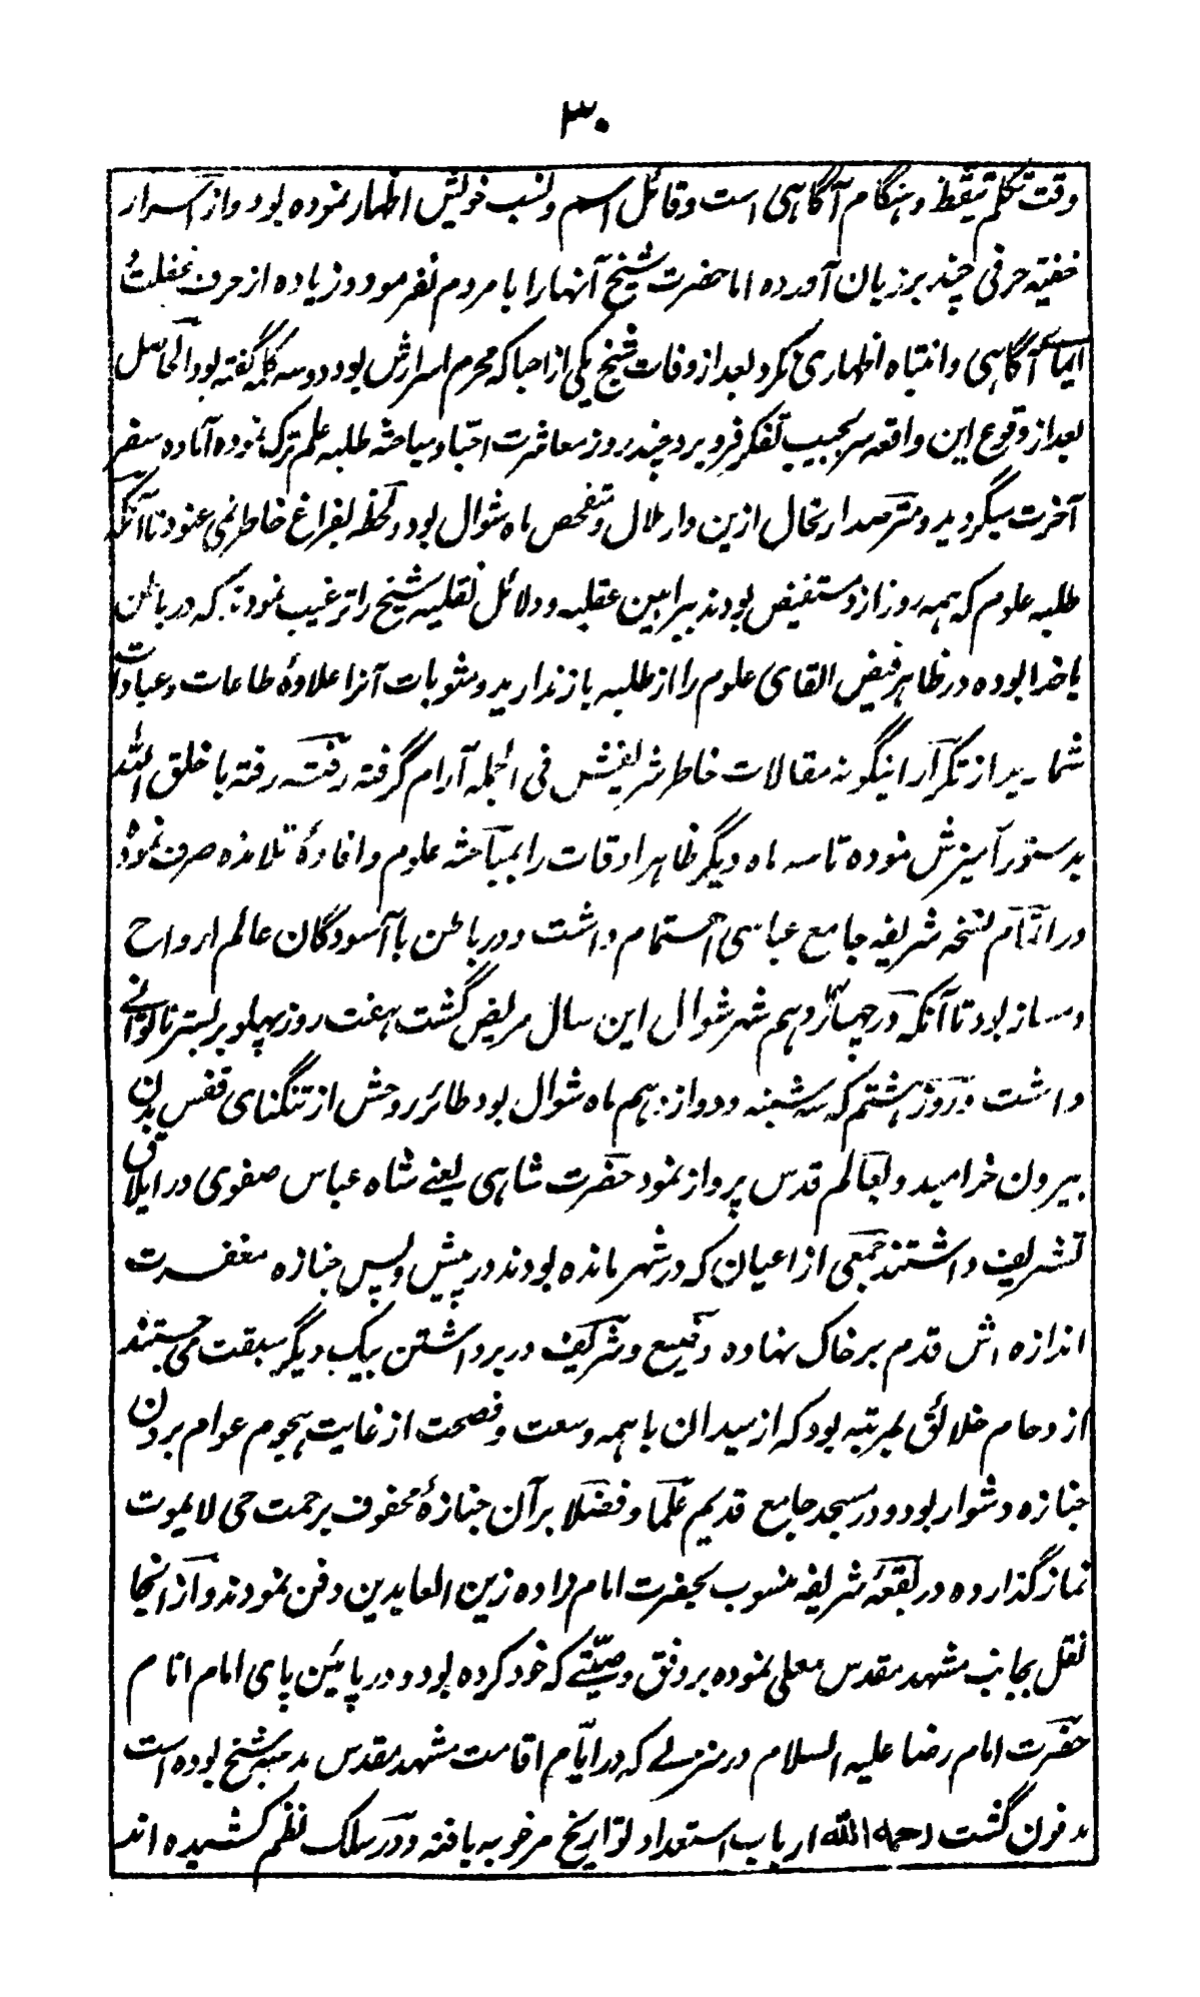 ۳۰
وقت تکلم تیقظ و هنگام آگاهی است و قائل اسم و نسب خویش اظهار نموده بود و از اسرار
خفیّه حرفی چند بر زبان آورده اما حضرت شیخ آنها را با مردم نفرمود و زیاده از حرف غفلت
آگاهی و انتباه اظهاری نکرد بعد از وفات شیخ یکی از احبا که محرم اسرارش بود دو سه کلمه گفته بود الحاصل
بعد از وقوع این واقعه سر بجیب تفکر فرو برد چند روز معاشرت احبّا و مباحثه طلبه علم ترک نموده آماده سفر
آخرت میگردید و مترصد ارتحال ازین دار ملال و متفحص ماه شوال بود و لحظه بفراغ خاطر نمی غنود تا آنکه
طلبه علوم که همه روز از و مستفیض بودند ببراهین عقلیه و دلائل نقلیه شیخ را ترغیب نمودند که در باطن
با خدا بوده در ظاهر فیض القای علوم را از طلبه باز ندارید و مثوبات آنرا علاوهٔ طاعات و عبادات
شمارید از تکرار اینگونه مقالات خاطر شریفش فی الجمله آرام گرفته رفته رفته با خلق الله
بدستور آمیزش نموده تا سه ماه دیگر ظاهر اوقات را بمباحثه علوم و افادهٔ تلامذه صرف نمود
در اتمام نسخه شریفه جامع عباسی اهتمام داشت و در باطن با آسودگان عالم ارواح
دمساز بود تا آنکه در چهاردهم شهر شوال این سال مریض گشت هفت روز پهلو بر بستر ناتوانی
داشت و روز هشتم که سه شنبه و دوازدهم ماه شوال بود طائر روحش از تنگنای قفس بدن
بیرون خرامید و بعالم قدس پرواز نمود حضرت شاهی یعنے شاه عباس صفوی در ایلاق
تشریف داشتند جمعی از اعیان که در شهر مانده بودند در پیش و پس جنازه مغفرت
اندازه اش قدم بر خاک نهاده وضیع و شریف در برداشتن بیک دیگر سبقت می جستند
ازدحام خلائق بمرتبه بود که از میدان با همه وسعت و فصحت از غایت هجوم عوام بردن
جنازه دشوار بود و در مسجد جامع قدیم علما و فضلا بر آن جنازهٔ محفوف برحمت حی لا یموت
نماز گذارده در بقعهٔ شریفه منسوب بحضرت امام زاده زین العابدین دفن نمودند و از آنجا
نقل بجانب مشهد مقدس معلی نموده بر وفق وصیّتے که خود کرده بود و در پائین پای امام انام
حضرت امام رضا علیه السلام در منزلے که در ایّام اقامت مشهد مقدس مدرسه شیخ بوده است
مدفون گشت رحمه الله ارباب استعداد تواریخ مرغوبه یافته و در سلک نظم کشیده اند